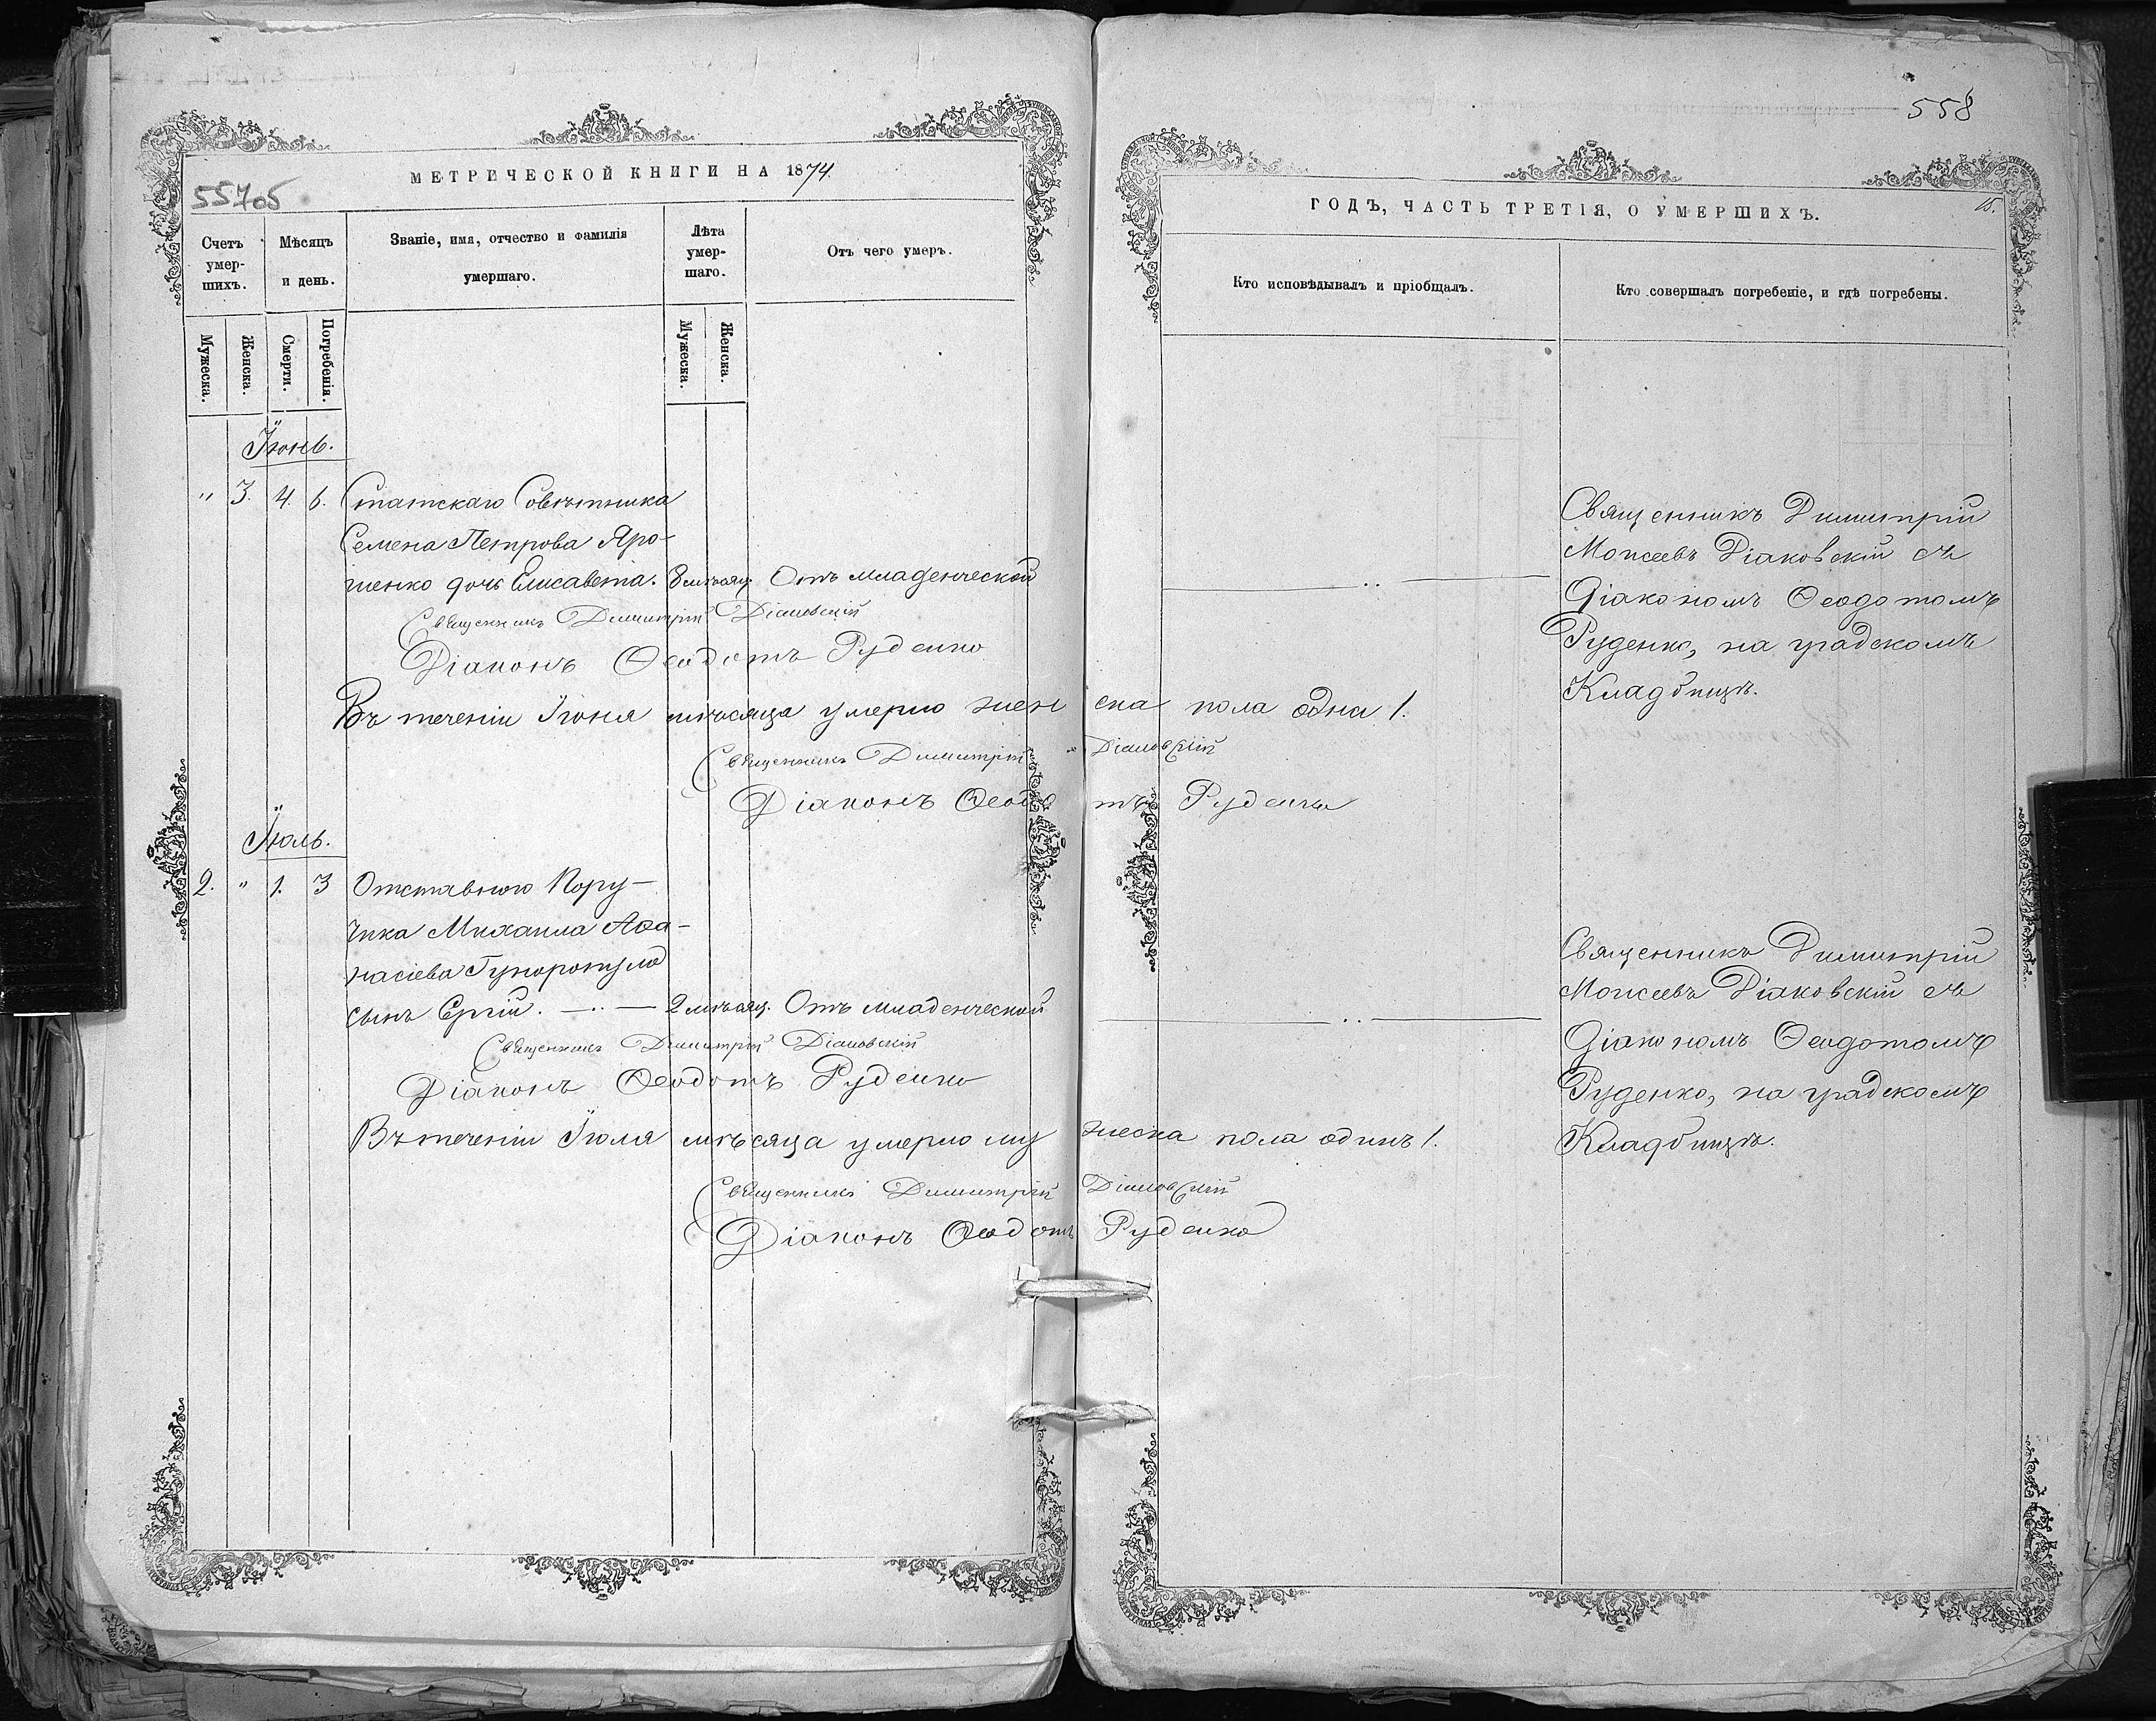 558
МЕТРИЧЕСКОЙ КНИГИ НА 1874
55705
Счетъ умер-шихъ.
Мѣсяцъ и день.
Званіе, имя, отчество и фамилія умершаго.
Лѣта умер-шаго.
Отъ чего умеръ.
Мужеска.
Женска.
Смерти.
Погребенія.
Мужеска.
Женска.
Іюнь.
" 3. 4. 6. Статскаго Совѣтника
Семена Петрова Яро-
шенко дочь Елисавета. 8 мѣсяц. Отъ младенческой
Священникъ Димитрій Діаковскій
Діаконъ Ѳеодотъ Руденко
Въ теченіи Іюня мѣсяца умерло жен
Священникъ Димитрій
Діаконъ Ѳеодо
Іюль.
2. " 1. 3 Отставного Пору-
чика Михаила Аѳа-
насіева
сынъ Сергій. 2 мѣсяц. Отъ младенческой
Священникъ Димитрій Діаковскій
Діаконъ Ѳеодотъ Руденко
Въ теченіи Іюля мѣсяца умерло му
Священникъ Димитрій
Діаконъ Ѳеодотъ
ГОДЪ, ЧАСТЬ ТРЕТІЯ, О УМЕРШИХЪ.
15.
Кто исповѣдывалъ и пріобщалъ.
Кто совершалъ погребеніе, и гдѣ погребены.
Священникъ Димитрій
Моисеевъ Діаковскій съ
Діакономъ Ѳеодотомъ
Руденко, на градскомъ
Кладбищѣ.
ска пола одна 1.
Діаковскій
тъ Руденко
Священникъ Димитрій
Моисеевъ Діаковскій съ
Діакономъ Ѳеодотомъ
Руденко, на градскомъ
Кладбищѣ.
жеска пола одинъ 1.
Діаковскій
Руденко